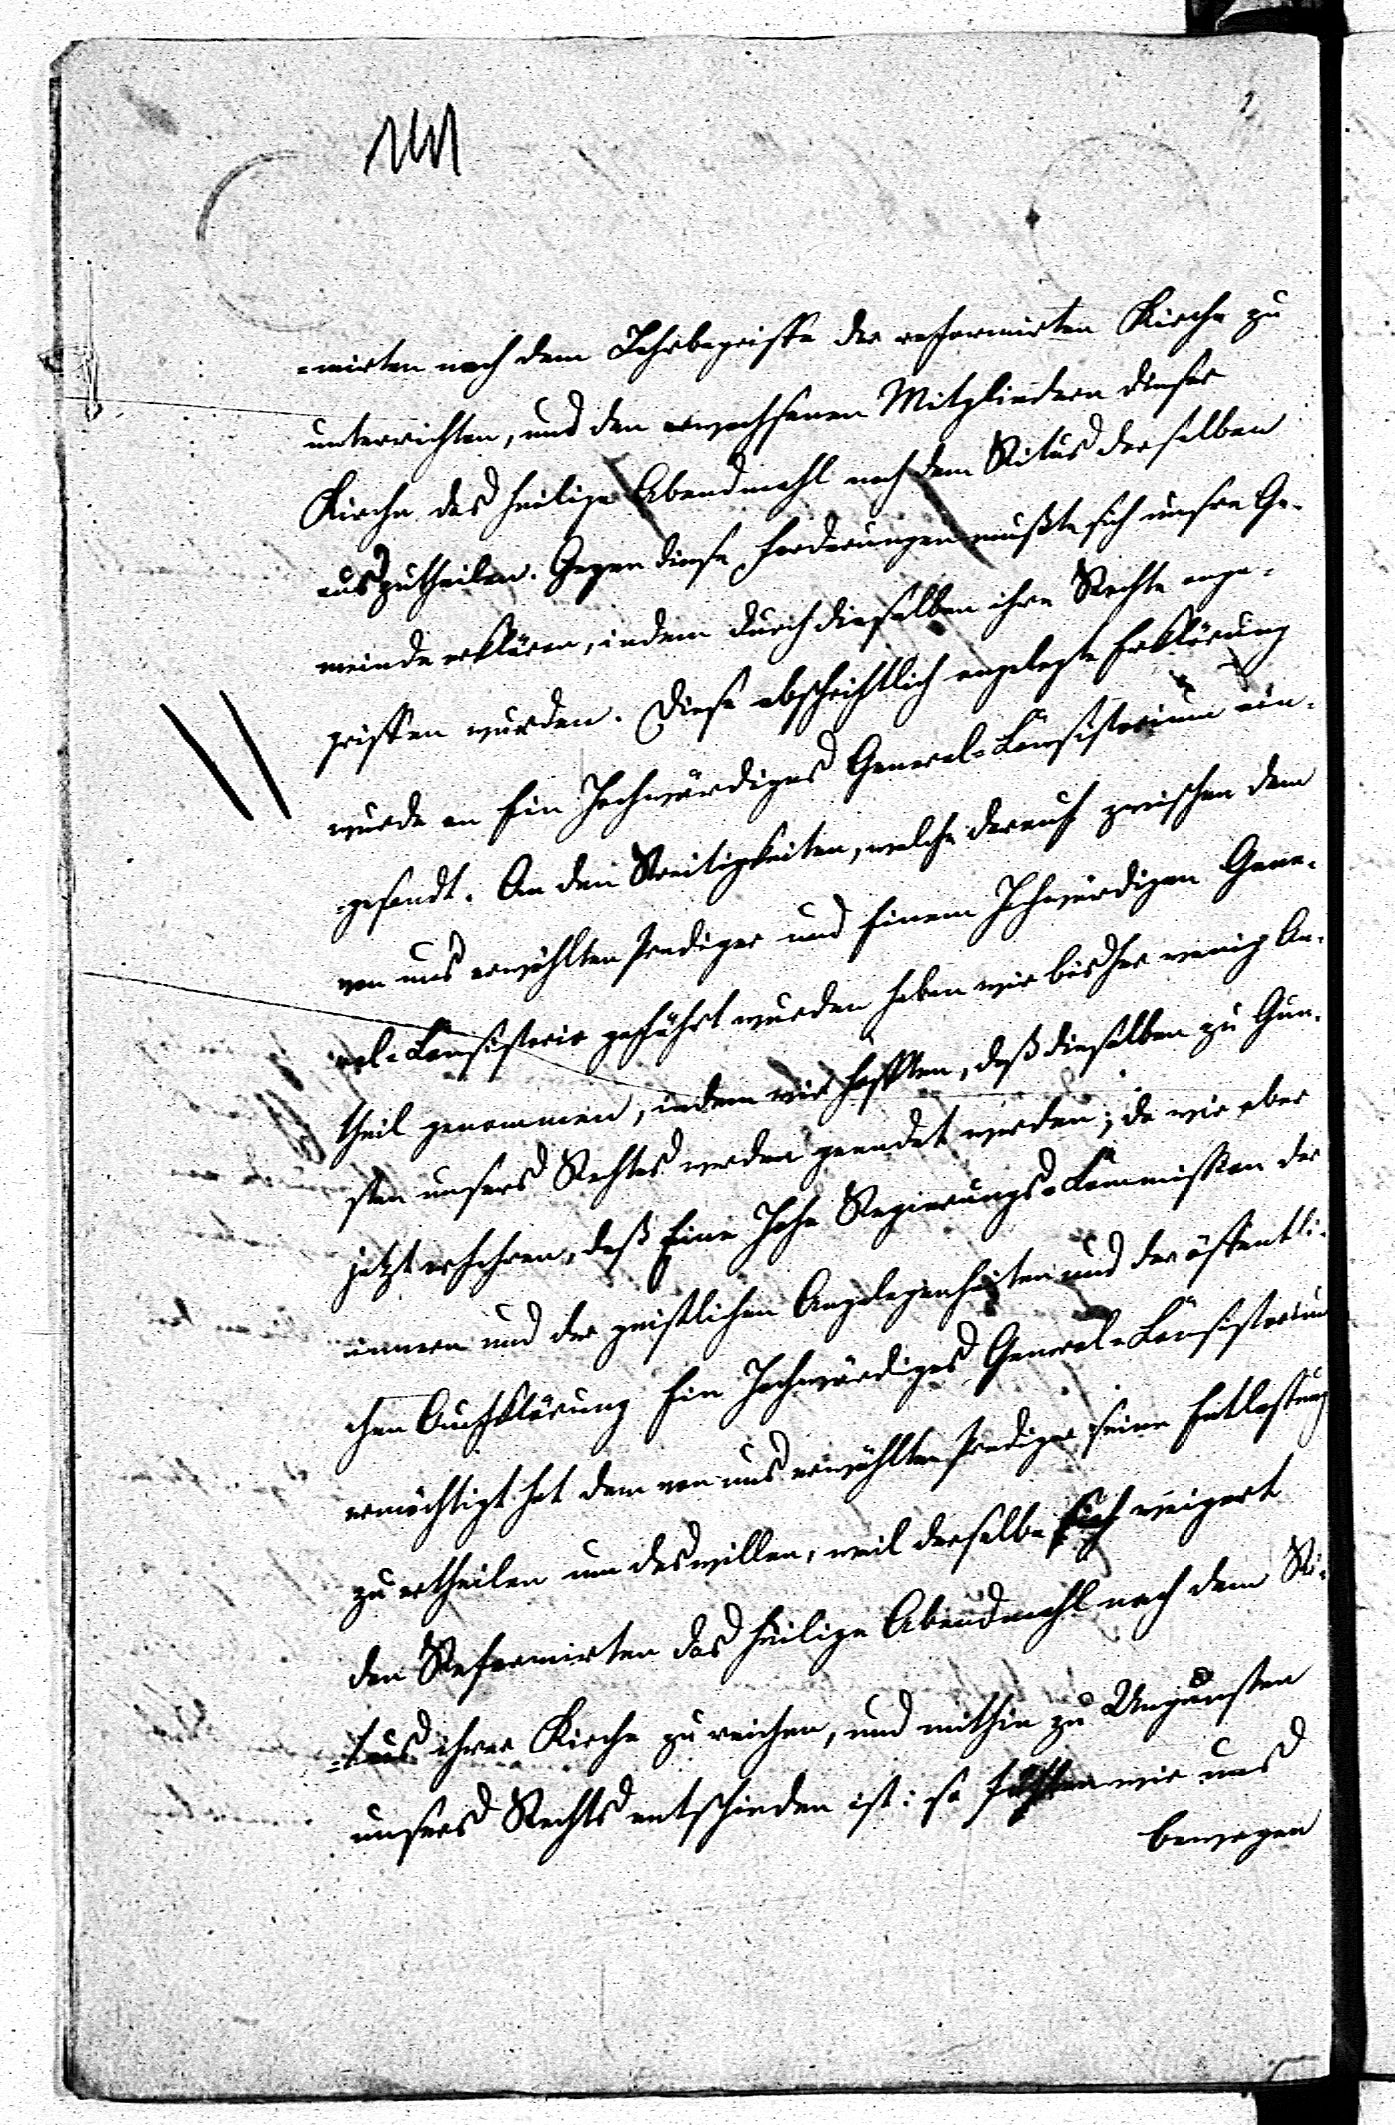 -mirten nach dem Lehrbegriffe der reformirten Kirche zu
unterrichten, und den erwachsenen Mitgliedern dieser
Kirche das heilige Abendmahl nach dem Ritus derselben
auszutheilen. Gegen diese Forderungen mußte sich unsre Ge-
meinde erklären, indem durch dieselben ihre Rechte ange-
griffen wurden. Diese abschriftlich angelegte Erklärung
wurde an Ein Hochwürdiges General-Consistorium ein-
-gesandt. An den Streitigkeiten, welche darauf zwischen dem
von uns erwählten Prediger und Einem Hochwürdigen Gene-
ral-Consistorio geführt wurden haben wir bisher wenig An-
theil genommen, indem wir hofften, daß dieselben zu Gun-
sten unsers Rechtes werden geendet werden; da wir aber
jetzt erfahren, daß Eine Hohe Regierungs-Commission der
innern und der geistlichen Angelegenheiten und der öffentli-
chen Aufklärung Ein Hochwürdiges General-Consistorium
ermächtigt hat dem von uns erwählten Prediger seine Entlassung
zu ertheilen um deswillen, weil derselbe sich weigert
den Reformirten das heilige Abendmahl nach dem Ri-
-tus ihrer Kirche zu reichen, und mithin zu Ungunsten
unsers Rechts entschieden ist: so fühlen wir uns
bewogen